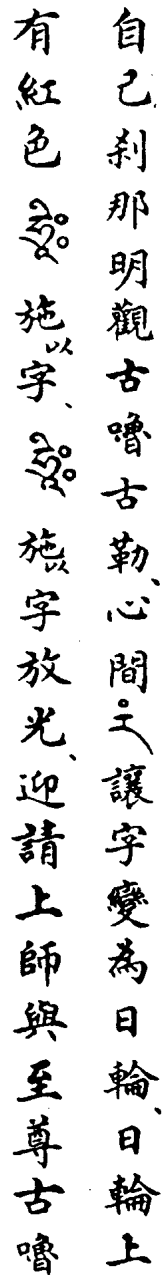 自己刹那明觀古嚕古勒、心間讓字變為日輪、日輪上
有紅色施以字、施以字放光、迎請上師與至尊古嚕